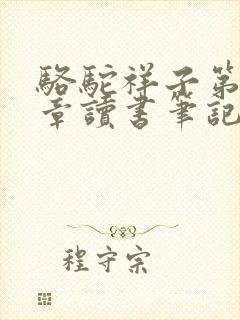 駱駝祥子第
章讀書筆記
程守宗